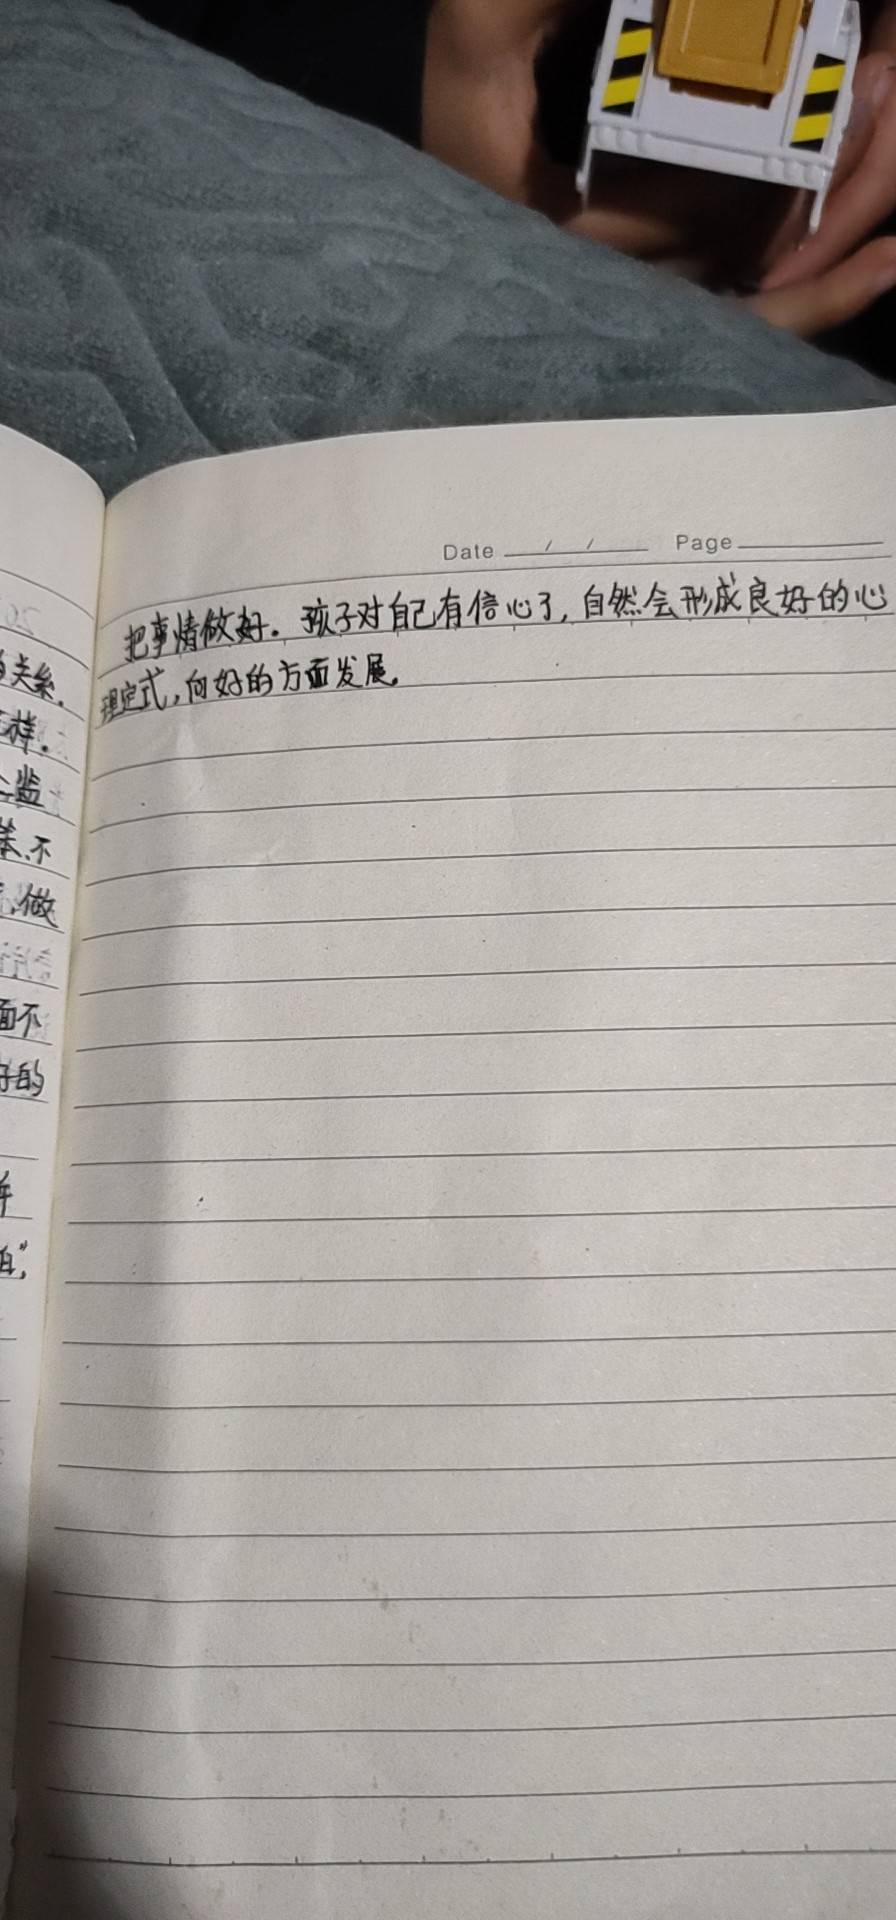 Date / / Page
把事情做好。孩子对自己有信心了,自然会形成良好的心
理定式,向好的方面发展。
关系.
样.
监
笨.不
做
面不
好的